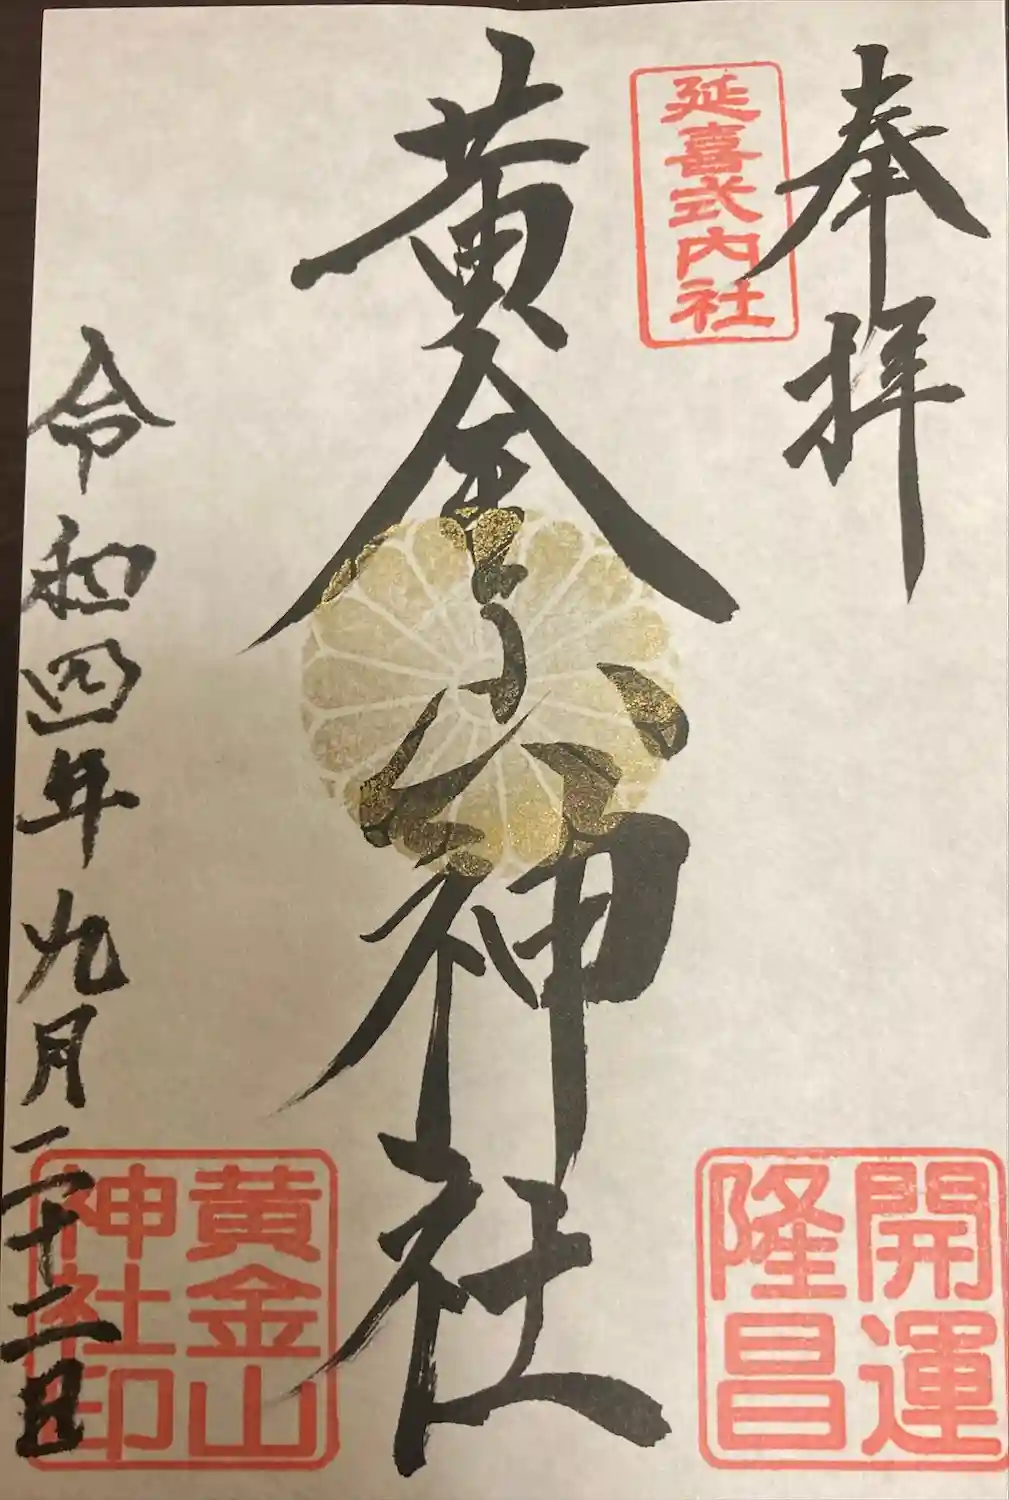 奉拝
延喜式内社
開運
隆昌
黄金山神社
黄金山
神社印
令和四年九月二十二日